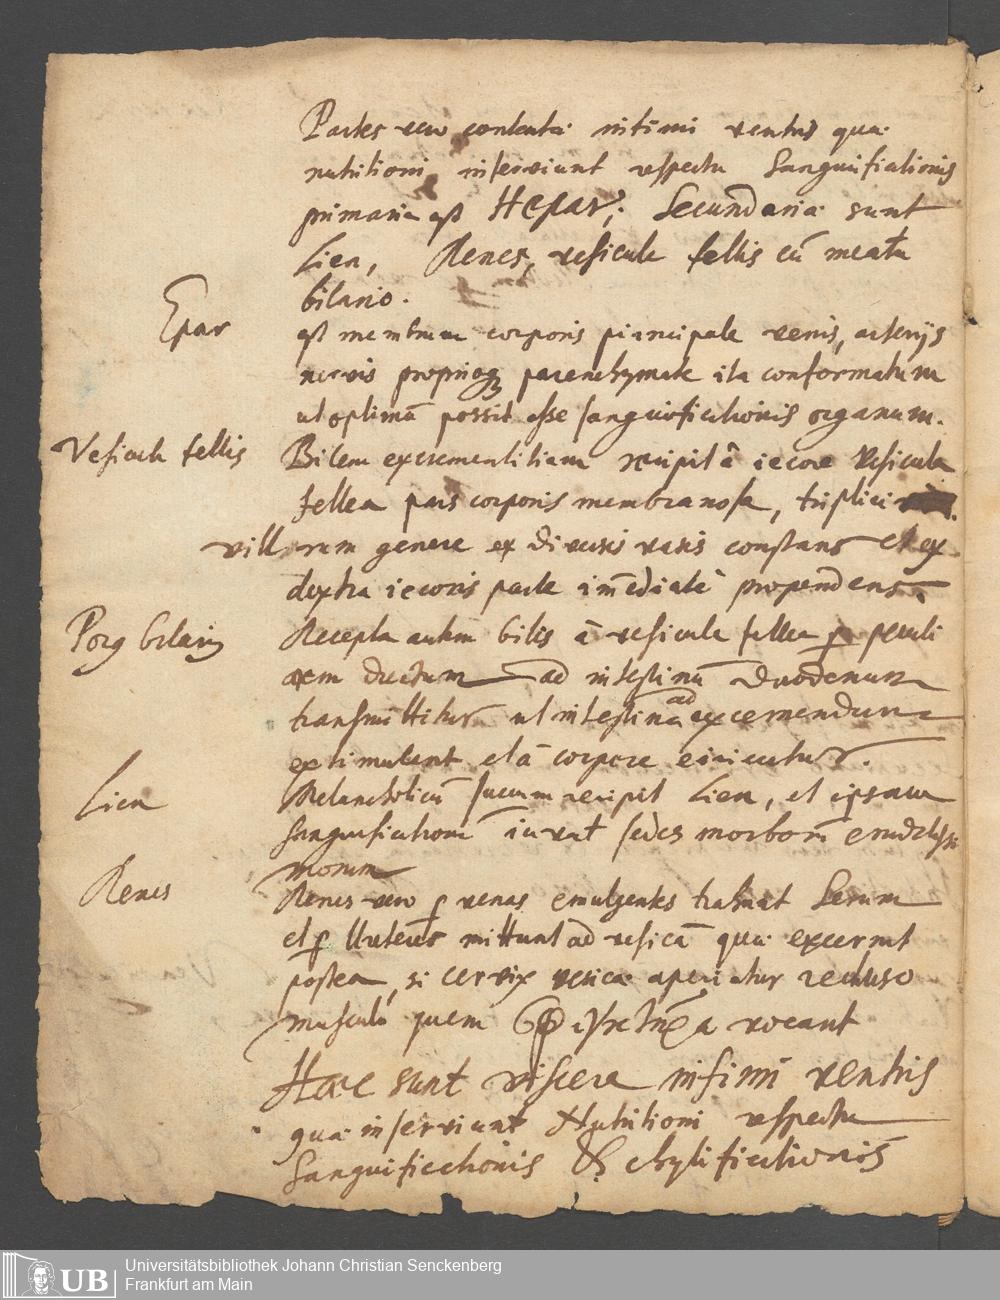 Partes vero contenta intimi ventris quæ
nutritioni inserviunt respectu Sanguificationis
primaria est Hepar; Secundaria sunt
Lien, Renes, vesicula fellis cū meatu
bilario.
Epar
est membrum corporis principale venis, arterijs
nervis proprioq parenchymate ita conformatum
ut optimū possit esse sanguificationis organum.
Vesicula fellis
Bilem excrementitiam recipit â iecore Vesicula
fellea pars corporis membranosa, triplici
villorum genere ex diversis vasis constans et ex
dextra iecoris parte im̄ediatè propendens.
Porg bilarig
Recepta autem bilis â vesicula fellea p peculi
arem ductum ad intestinū Duodenum
transmittitur ut intestina ad excernendum
extimulent et â corpore eiiciatur.
Lien
Melancholicū succum recipit Lien, et ipsam
sanguificationem iuvat sedes morborū crudelissi
morum
Renes
Renes vero p venas emulgentes trahunt Serum
et p Ureteres mittunt ad vesicā quæ excernit
postea, si cervix vesicæ aperiatur recluso
musculo quem vocant
Hæc sunt viscera infimi ventris
quæ inserviunt Nutritioni respectu
Sanguificationis & chylificationis
UB
Universitätsbibliothek Johann Christian Senckenberg
Frankfurt am Main